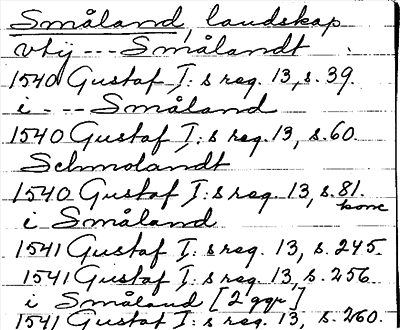 Småland, landskap
vtij --- Smålandt
1540 Gustaf I:s reg. 13, s. 39.
i --- Småland
1540 Gustaf I:s reg. 13, s. 60.
Schmolandt
1540 Gustaf I:s reg. 13, s. 81.
i Småland
1541 Gustaf I:s reg. 13, s. 245.
1541 Gustaf I:s reg. 13, s. 256.
i Småland [2 ggr]
1541 Gustaf I:s reg. 13, s. 260.